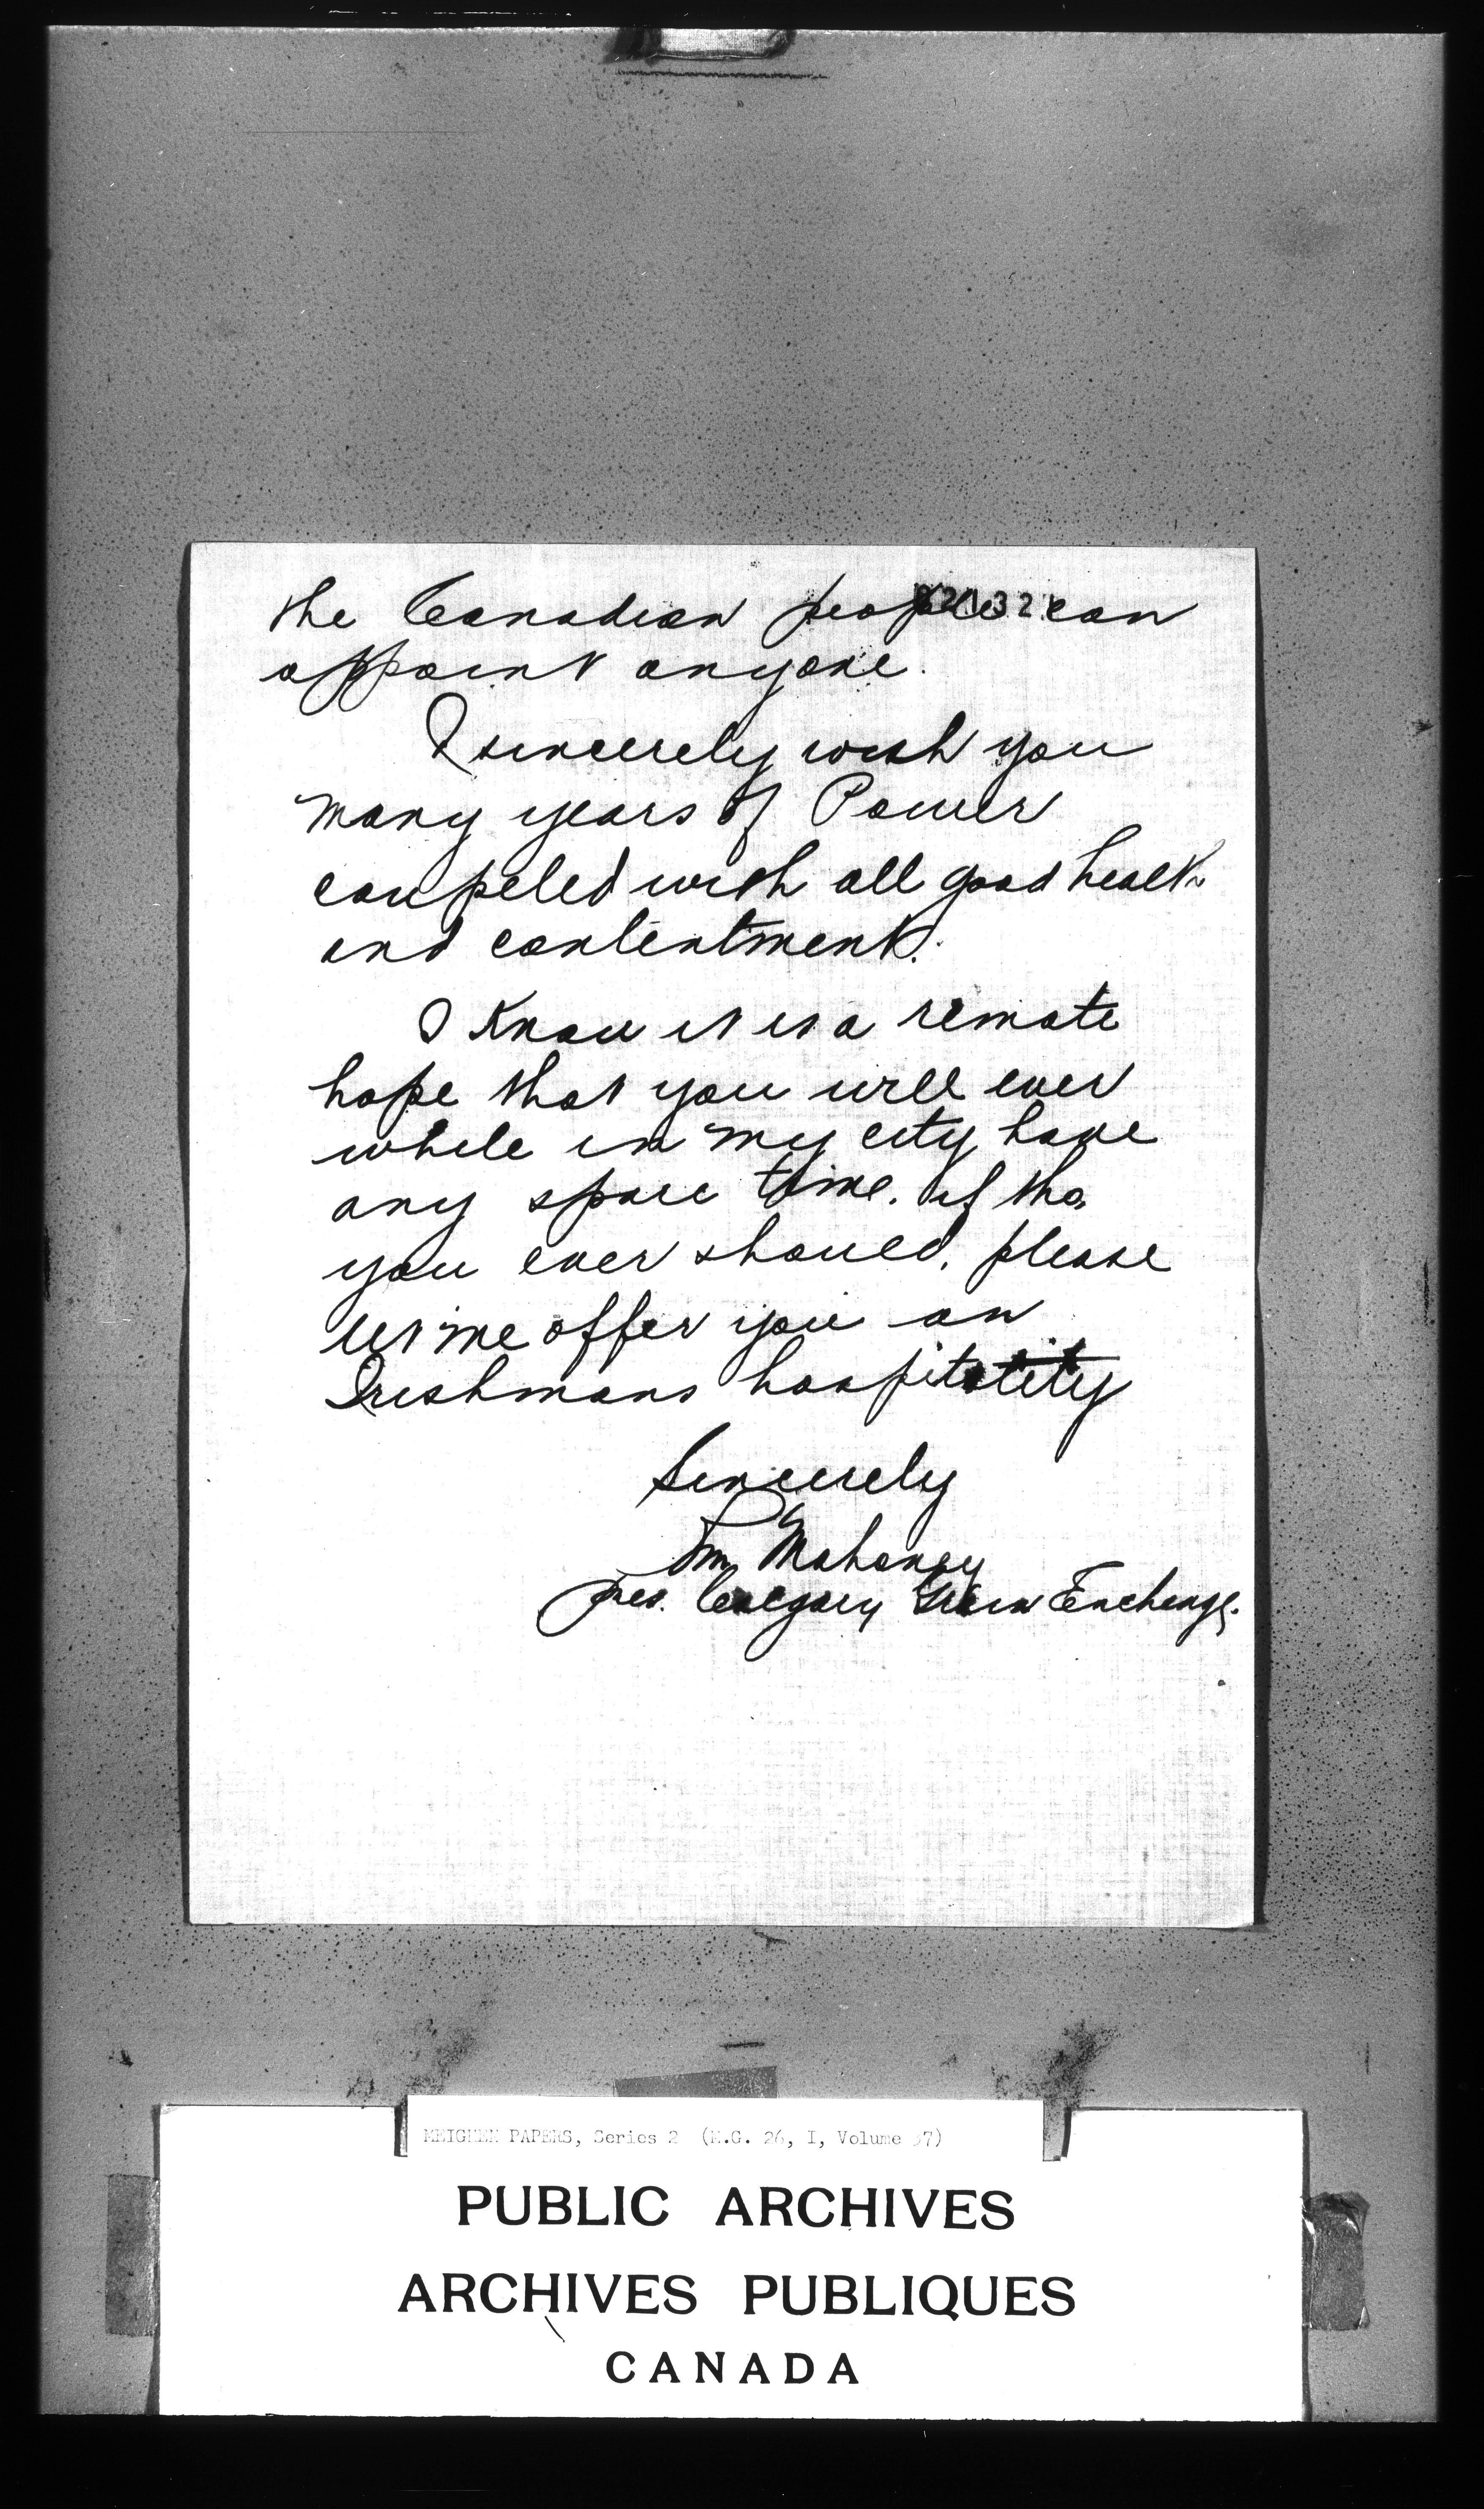 the Canadian people can
appoint anyone.
I sincerely wish you
many years of Power
coupeled with all good health
and contentment.
I Know it is a remote
hope that you will ever
while in my city have
any spare time. if tho
you ever should, please
let me offer you an
Irishmans hospitality
Sincerely
Wm Mahoney
Pres. Calgary Grain Exchange.
MEIGHEN PAPERS, Series 2 (M.G. 26, I, Volume 37)
PUBLIC ARCHIVES
ARCHIVES PUBLIQUES
CANADA